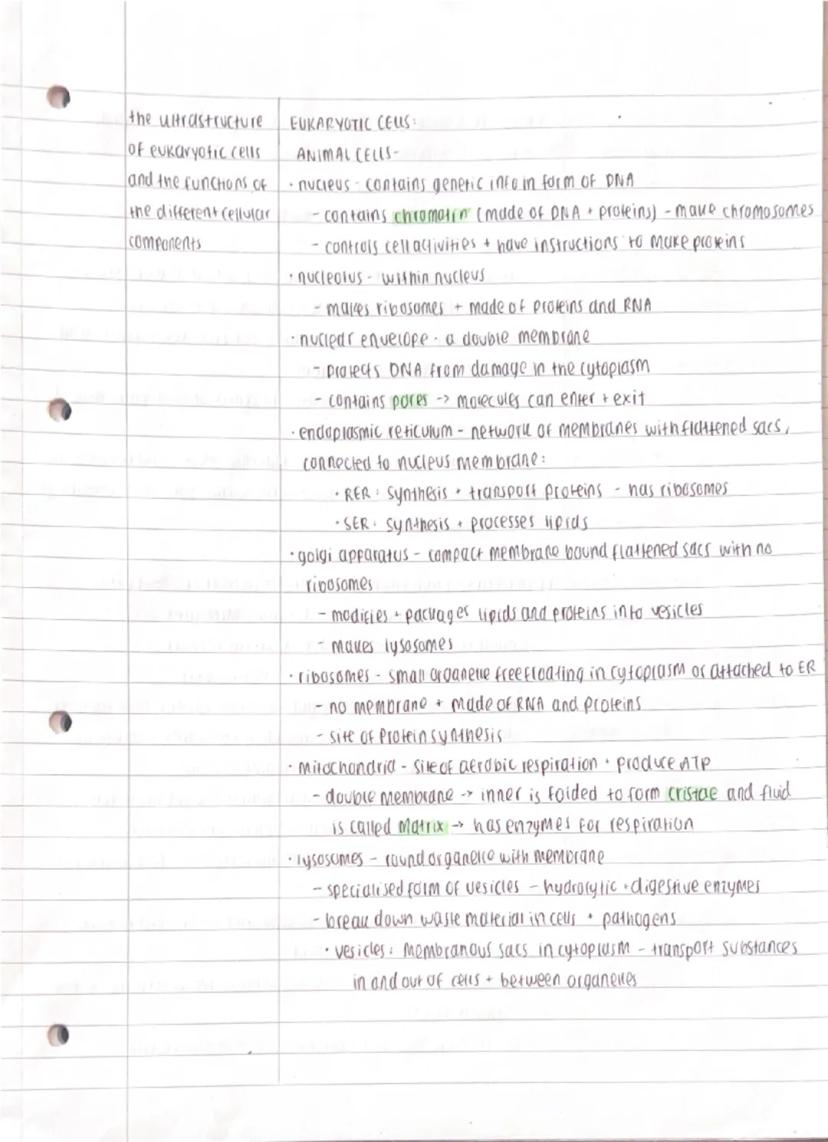 the ultrastructure
of eukaryotic cells
and the functions of
the different cellular
components
EUKARYOTIC CELLS:
ANIMAL CELLS-
· nucleus - contains genetic info in form of DNA
- contains chromatin (made of DNA + proteins) - make chromosomes
- controls cell activities + have instructions to make proteins
· nucleolus - within nucleus
- makes ribosomes + made of proteins and RNA
· nuclear envelope - a double membrane
- protects DNA from damage in the cytoplasm
- contains pores -> molecules can enter + exit
· endoplasmic reticulum - network of membranes with flattened sacs,
connected to nucleus membrane:
· RER: synthesis + transport proteins - has ribosomes
· SER: synthesis + processes lipids
· golgi apparatus - compact membrane bound flattened sacs with no
ribosomes
- modifies + packages lipids and proteins into vesicles
- makes lysosomes
· ribosomes - small organelle free floating in cytoplasm or attached to ER
- no membrane + made of RNA and proteins
- site of protein synthesis
· mitochondria - site of aerobic respiration + produce ATP
- double membrane -> inner is folded to form cristae and fluid
is called matrix -> has enzymes for respiration
· lysosomes - round organelle with membrane
- specialised form of vesicles - hydrolytic + digestive enzymes
- break down waste material in cells + pathogens
· vesicles: membranous sacs in cytoplasm - transport substances
in and out of cells + between organelles